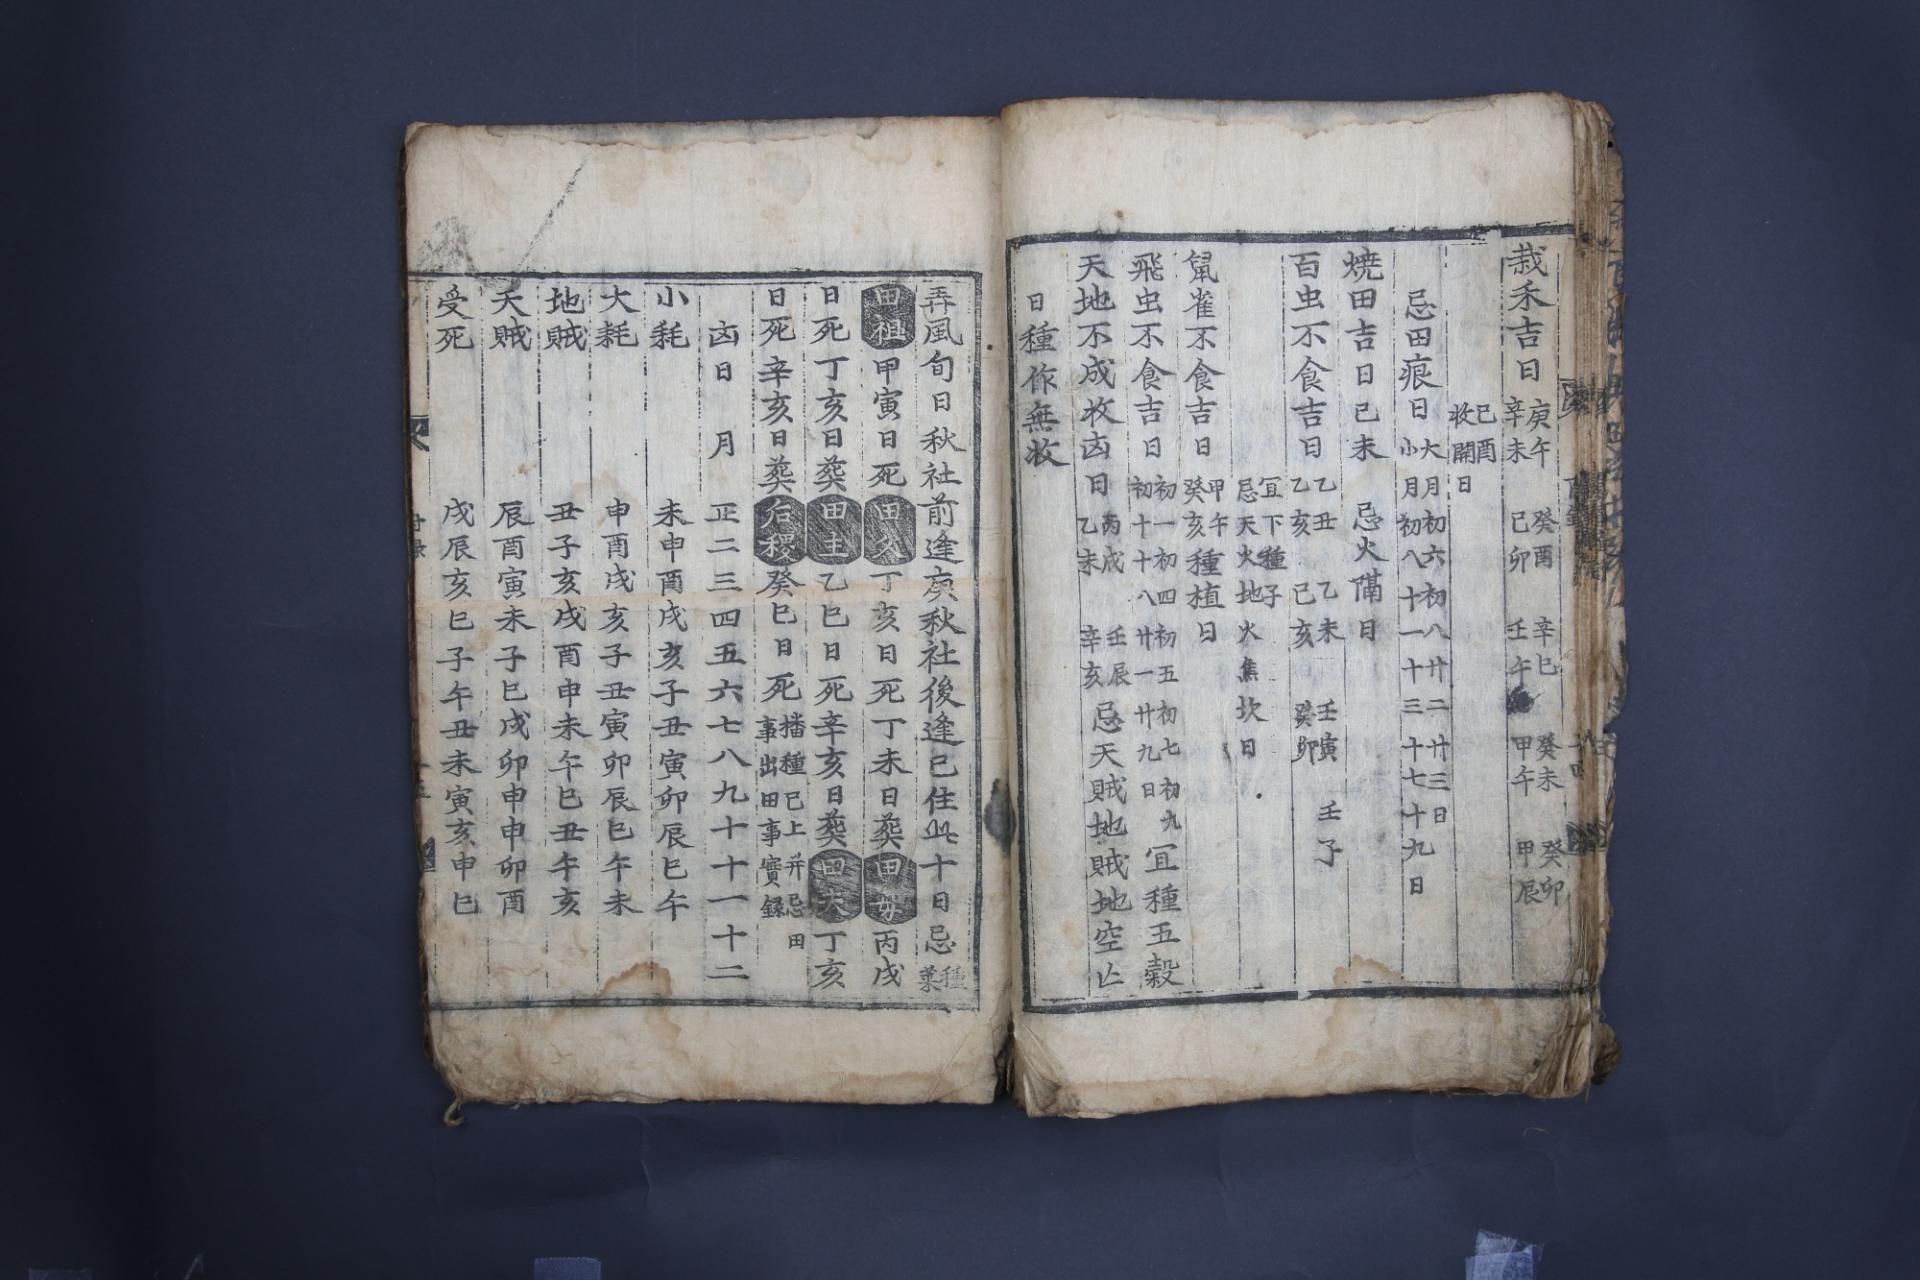 栽禾吉日 庚午 辛未 癸酉 己卯 辛巳 壬午 癸未 甲午 癸卯 甲辰
己酉 收開日
忌田痕日 大月初六初八廿二廿三日 小月初八十一十三十七十九日
焼田吉日己未 忌火隔日
百虫不食吉日 乙丑 乙亥 乙未 己亥 壬寅 癸卯 壬子
宜下種子 忌天火地火焦坎日
䑕雀不食吉日 甲午 癸亥 種植日
飛虫不食吉日 初一初四初五初七初九 初十十八廿一廿九日 宜種五穀
天地不成收凶日 丙戌 乙未 壬辰 辛亥 忌天賊地賊地空亡
日種作無收
弄風旬日秋社前逢庚秋社後逢己住此十日忌 種菜
田祖甲寅日死田父丁亥日死丁未日葬田母丙戌
日死丁亥日葬田主乙巳日死辛亥日葬田夫丁亥
日死辛亥日葬后稷癸巳日死 播種已上并忌田 事出田事實錄
凶日 月 正二三四五六七八九十十一十二
小耗 未申酉戌亥子丑寅卯辰巳午
大耗 申酉戌亥子丑寅卯辰巳午未
地賊 丑子亥戌酉申未午巳丑午亥
天賊 辰酉寅未子巳戌卯申申卯酉
受死 戌辰亥巳子午丑未寅亥申巳